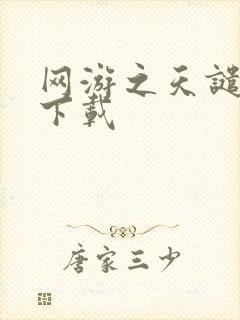 网游之天谴
下载
唐家三少